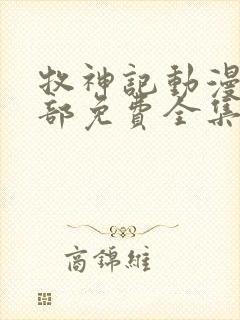 牧神記動漫
部免費全集
高錦維